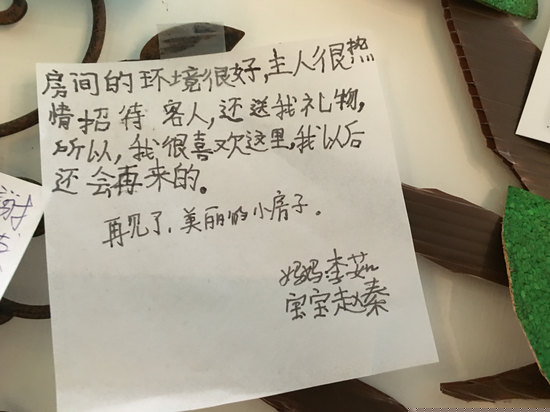 房间的环境很好,主人很热
情招待客人,还送我礼物,
所以,我很喜欢这里,我以后
还会再来的。
再见了,美丽的小房子。
妈妈李茹
宝宝赵秦